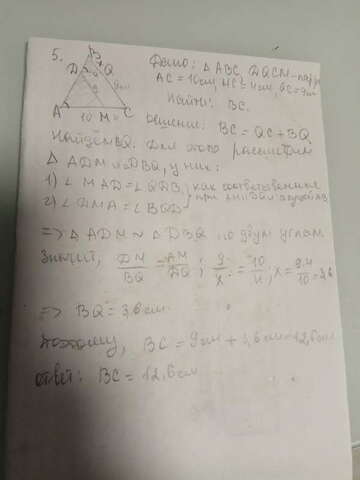 5.
B
D Q
9см
A 10 M C
Дано: △ ABC, DQCM-пар
AC = 10см, MC = 4см, QC = 9см
Найти: BC.
Решение: BC = QC + BQ
Найдём BQ. Для этого рассмотрим
△ ADM и DBQ, у них:
1) ∠ MAD = ∠ QDB, как соответственные
2) ∠ DMA = ∠ BQD при
=> △ ADM ~ △ DBQ по двум углам
Значит, DM/BQ = AM/DQ; 9/x = 10/4, x = 9.4/10 = 3,6
=> BQ = 3,6 см
Поэтому, BC = 9см + 3,6 см = 12,6см
Ответ: BC = 12,6 см